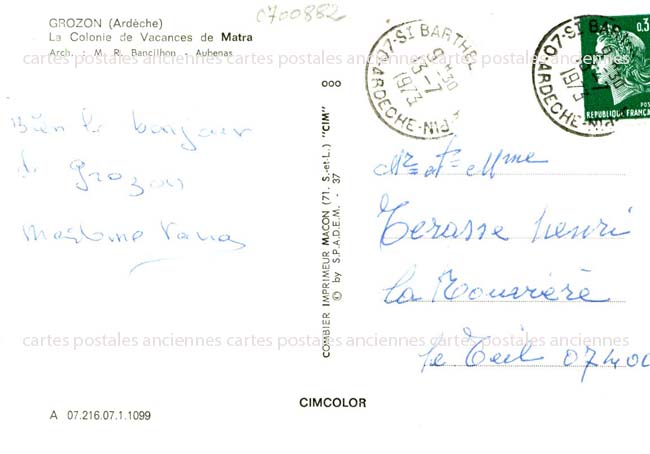 GROZON (Ardèche)
La Colonie de Vacances de Matra
Arch. : M. R. Bancilhon - Aubenas
C700882
Bien le bonjour
de Grozon
Madame
ooo
COMBIER IMPRIMEUR MACON (71. S.-et-L.) "CIM"
© by S.P.A.D.E.M. - 37
07-ST BARTHEL
9H30
3-7
1973
ARDECHE-PIN
07-ST BARTHEL
9H30
3-7
1973
ARDECHE-PIN
0,3
POS
REPUBLIQUE FRANÇA
Mr et Mme
Terasse henri
La Rouvière
le Teil 07400
cartes postales anciennes cartes postales anciennes cartes postales anciennes
cartes postales anciennes cartes postales anciennes cartes postales anciennes
CIMCOLOR
A 07.216.07.1.1099